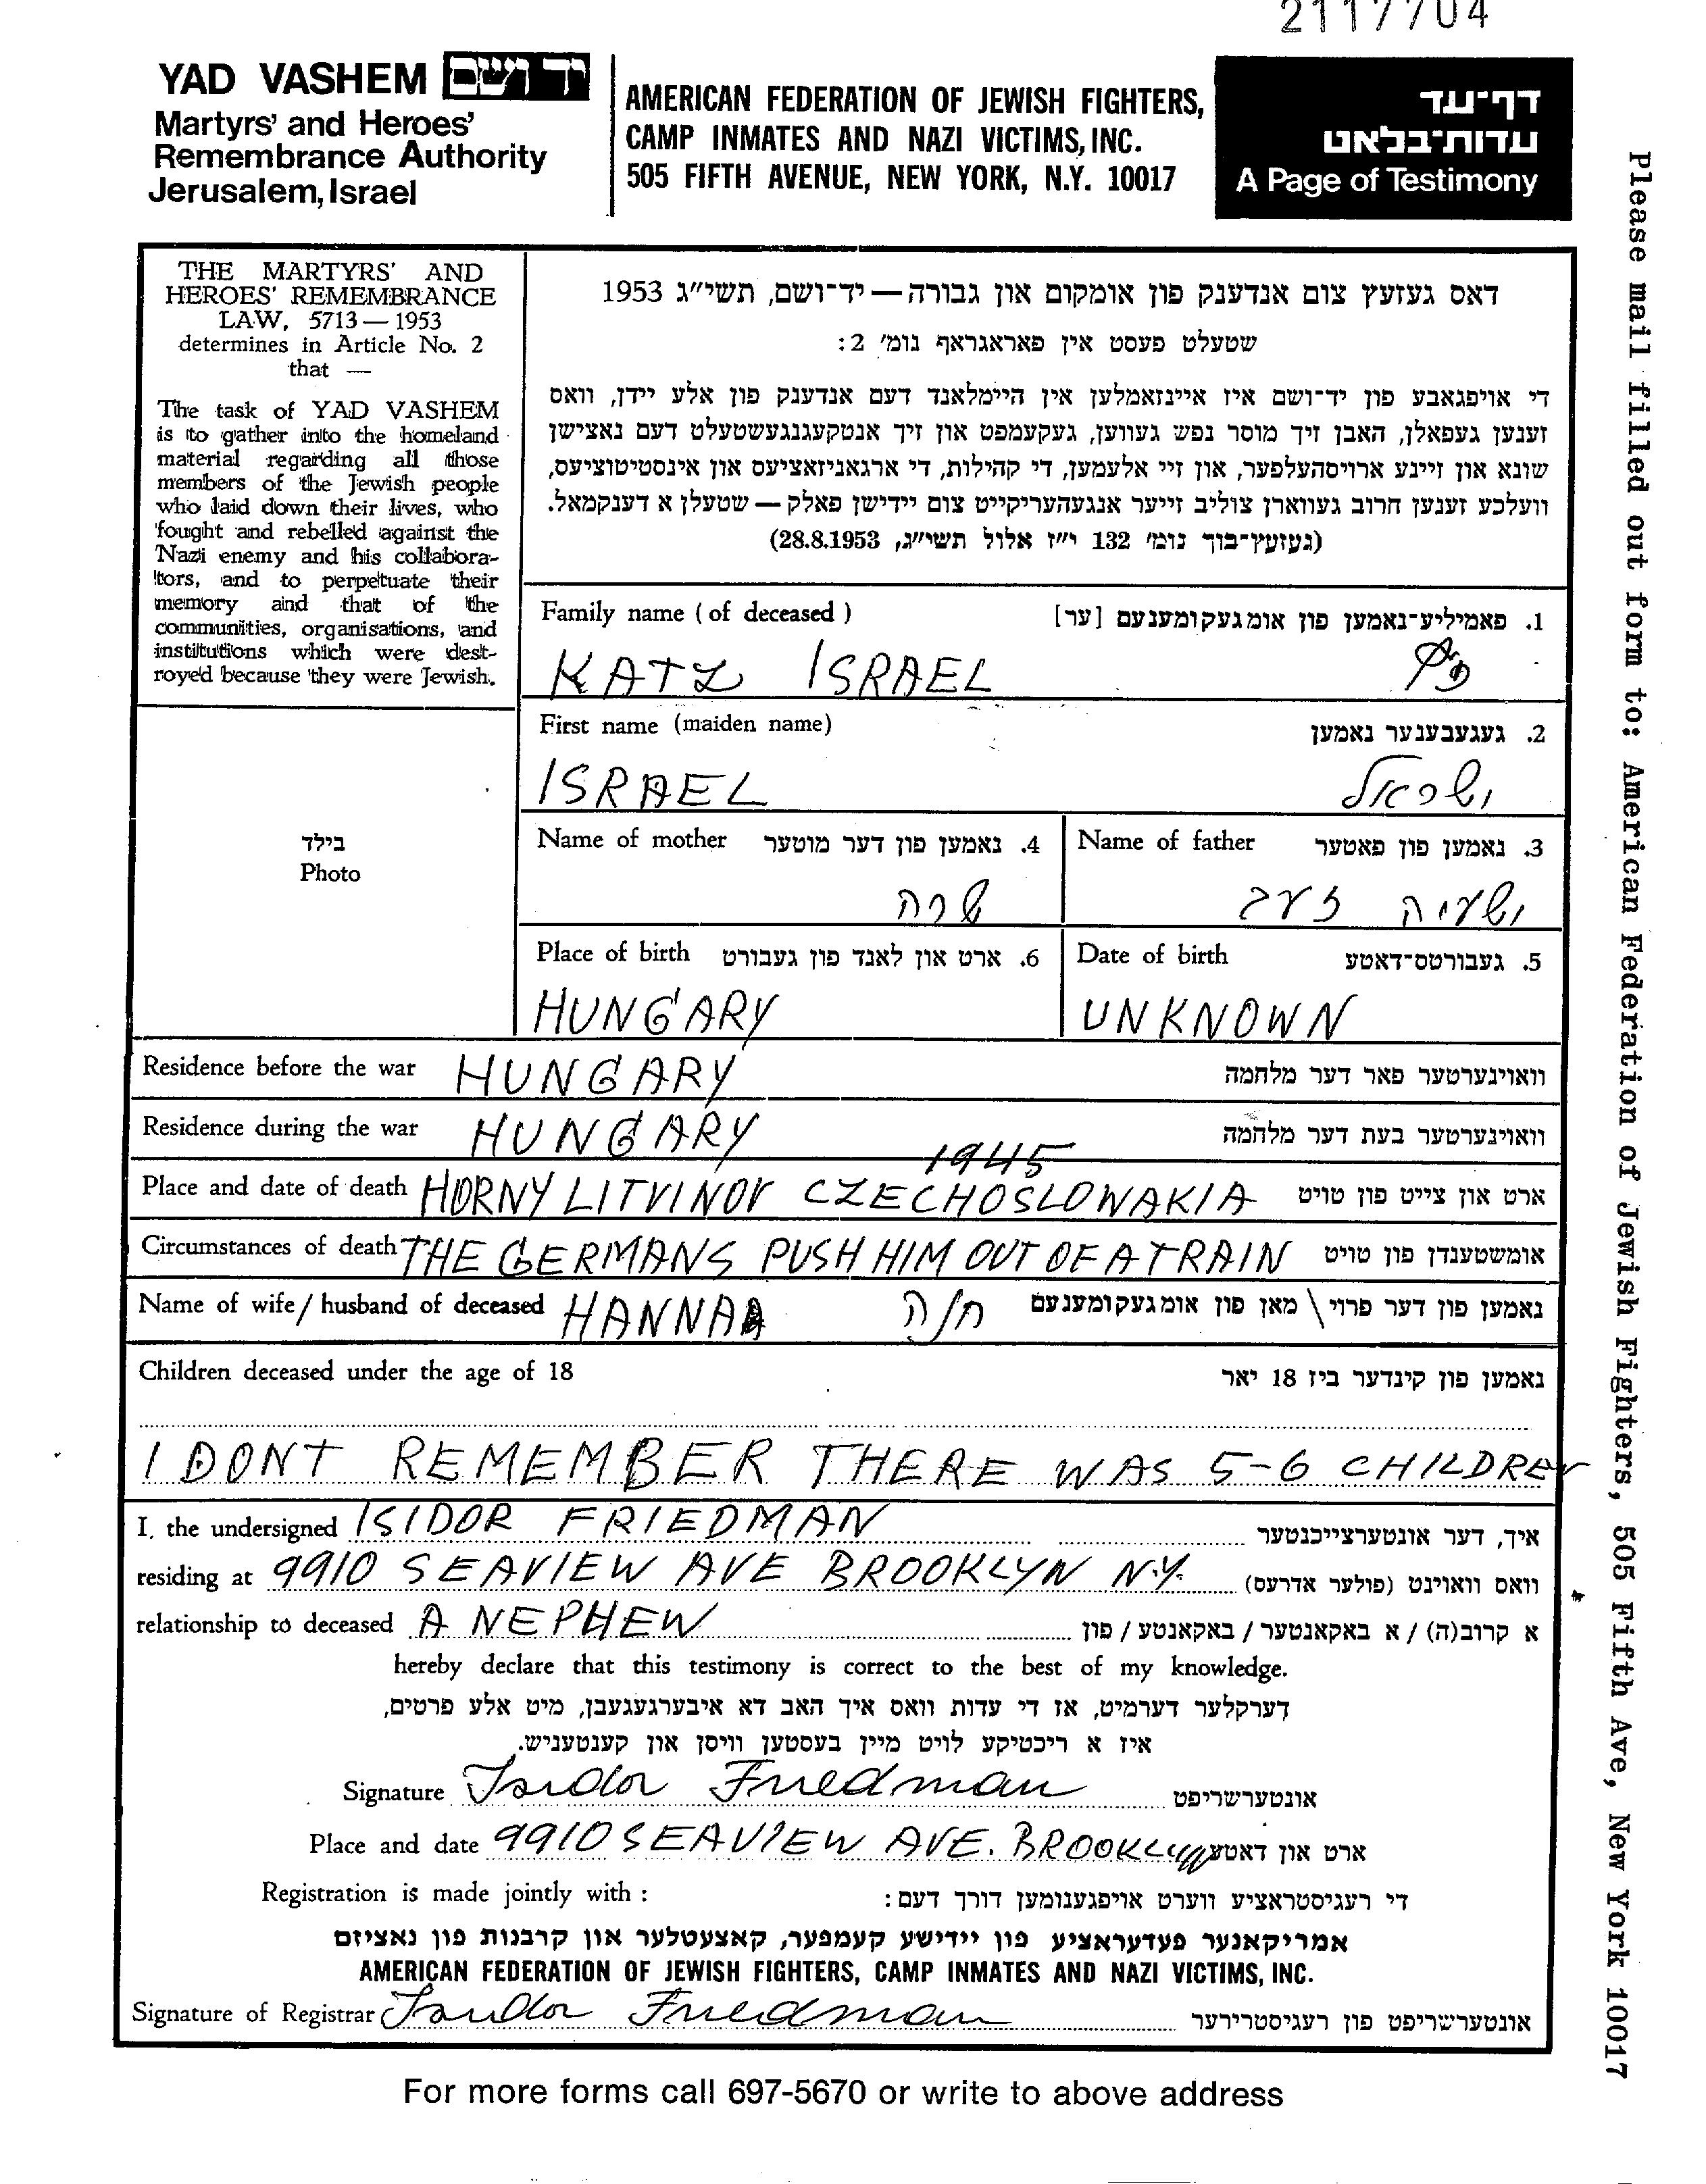 2117704
YAD VASHEM יד ושם
Martyrs' and Heroes'
Remembrance Authority
Jerusalem, Israel
AMERICAN FEDERATION OF JEWISH FIGHTERS,
CAMP INMATES AND NAZI VICTIMS, INC.
505 FIFTH AVENUE, NEW YORK, N.Y. 10017
דף-עד
עדות-בלאט
A Page of Testimony
THE MARTYRS' AND
HEROES' REMEMBRANCE
LAW, 5713 — 1953
determines in Article No. 2
that —
The task of YAD VASHEM
is to gather into the homeland
material regarding all those
members of the Jewish people
who laid down their lives, who
fought and rebelled against the
Nazi enemy and his collabora-
tors, and to perpetuate their
memory and that of the
communities, organisations, and
institutions which were dest-
royed because they were Jewish.
דאס געזעץ צום אנדענק פון אומקום און גבורה — יד-ושם, תשי"ג 1953
שטעלט פעסט אין פאראגראף נומ' 2:
די אויפגאבע פון יד-ושם איז איינזאמלען אין היימלאנד דעם אנדענק פון אלע יידן, וואס
זענען געפאלן, האבן זיך מוסר נפש געווען, געקעמפט און זיך אנטקעגנגעשטעלט דעם נאצישן
שונא און זיינע ארויסהעלפער, און זיי אלעמען, די קהילות, די ארגאניזאציעס און אינסטיטוציעס,
וועלכע זענען חרוב געווארן צוליב זייער אנגעהעריקייט צום יידישן פאלק — שטעלן א דענקמאל.
(געזעץ-בוך נומ' 132 י"ז אלול תשי"ג, 28.8.1953)
Family name (of deceased) 1. פאמיליע-נאמען פון אומגעקומענעם [ער]
KATZ ISRAEL כ"ץ
First name (maiden name) 2. געגעבענער נאמען
ISRAEL ישראל
בילד
Photo
Name of mother 4. נאמען פון דער מוטער
שרה
Name of father 3. נאמען פון פאטער
ישעיה זאב
Place of birth 6. ארט און לאנד פון געבורט
HUNGARY
Date of birth 5. געבורטס-דאטע
UNKNOWN
Residence before the war HUNGARY וואוינערטער פאר דער מלחמה
Residence during the war HUNGARY וואוינערטער בעת דער מלחמה
1945
Place and date of death HORNY LITVINOV CZECHOSLOWAKIA ארט און צייט פון טויט
Circumstances of death THE GERMANS PUSH HIM OUT OF A TRAIN אומשטענדן פון טויט
Name of wife / husband of deceased HANNA חנה נאמען פון דער פרוי \ מאן פון אומגעקומענעם
Children deceased under the age of 18 נאמען פון קינדער ביז 18 יאר
I DONT REMEMBER THERE WAS 5-6 CHILDREN
I, the undersigned ISIDOR FRIEDMAN איך, דער אונטערצייכנטער
residing at 9910 SEAVIEW AVE BROOKLYN N.Y. וואס וואוינט (פולער אדרעס)
relationship to deceased A NEPHEW א קרוב(ה) / א באקאנטער / באקאנטע / פון
hereby declare that this testimony is correct to the best of my knowledge.
דערקלער דערמיט, אז די עדות וואס איך האב דא איבערגעגעבן, מיט אלע פרטים,
איז א ריכטיקע לויט מיין בעסטען וויסן און קענטעניש.
Signature Isidor Friedman אונטערשריפט
Place and date 9910 SEAVIEW AVE. BROOKLYN ארט און דאטע
Registration is made jointly with : די רעגיסטראציע ווערט אויפגענומען דורך דעם :
אמריקאנער פעדעראציע פון יידישע קעמפער, קאצעטלער און קרבנות פון נאציזם
AMERICAN FEDERATION OF JEWISH FIGHTERS, CAMP INMATES AND NAZI VICTIMS, INC.
Signature of Registrar Isidor Friedman אונטערשריפט פון רעגיסטרירער
For more forms call 697-5670 or write to above address
Please mail filled out form to: American Federation of Jewish Fighters, 505 Fifth Ave, New York 10017